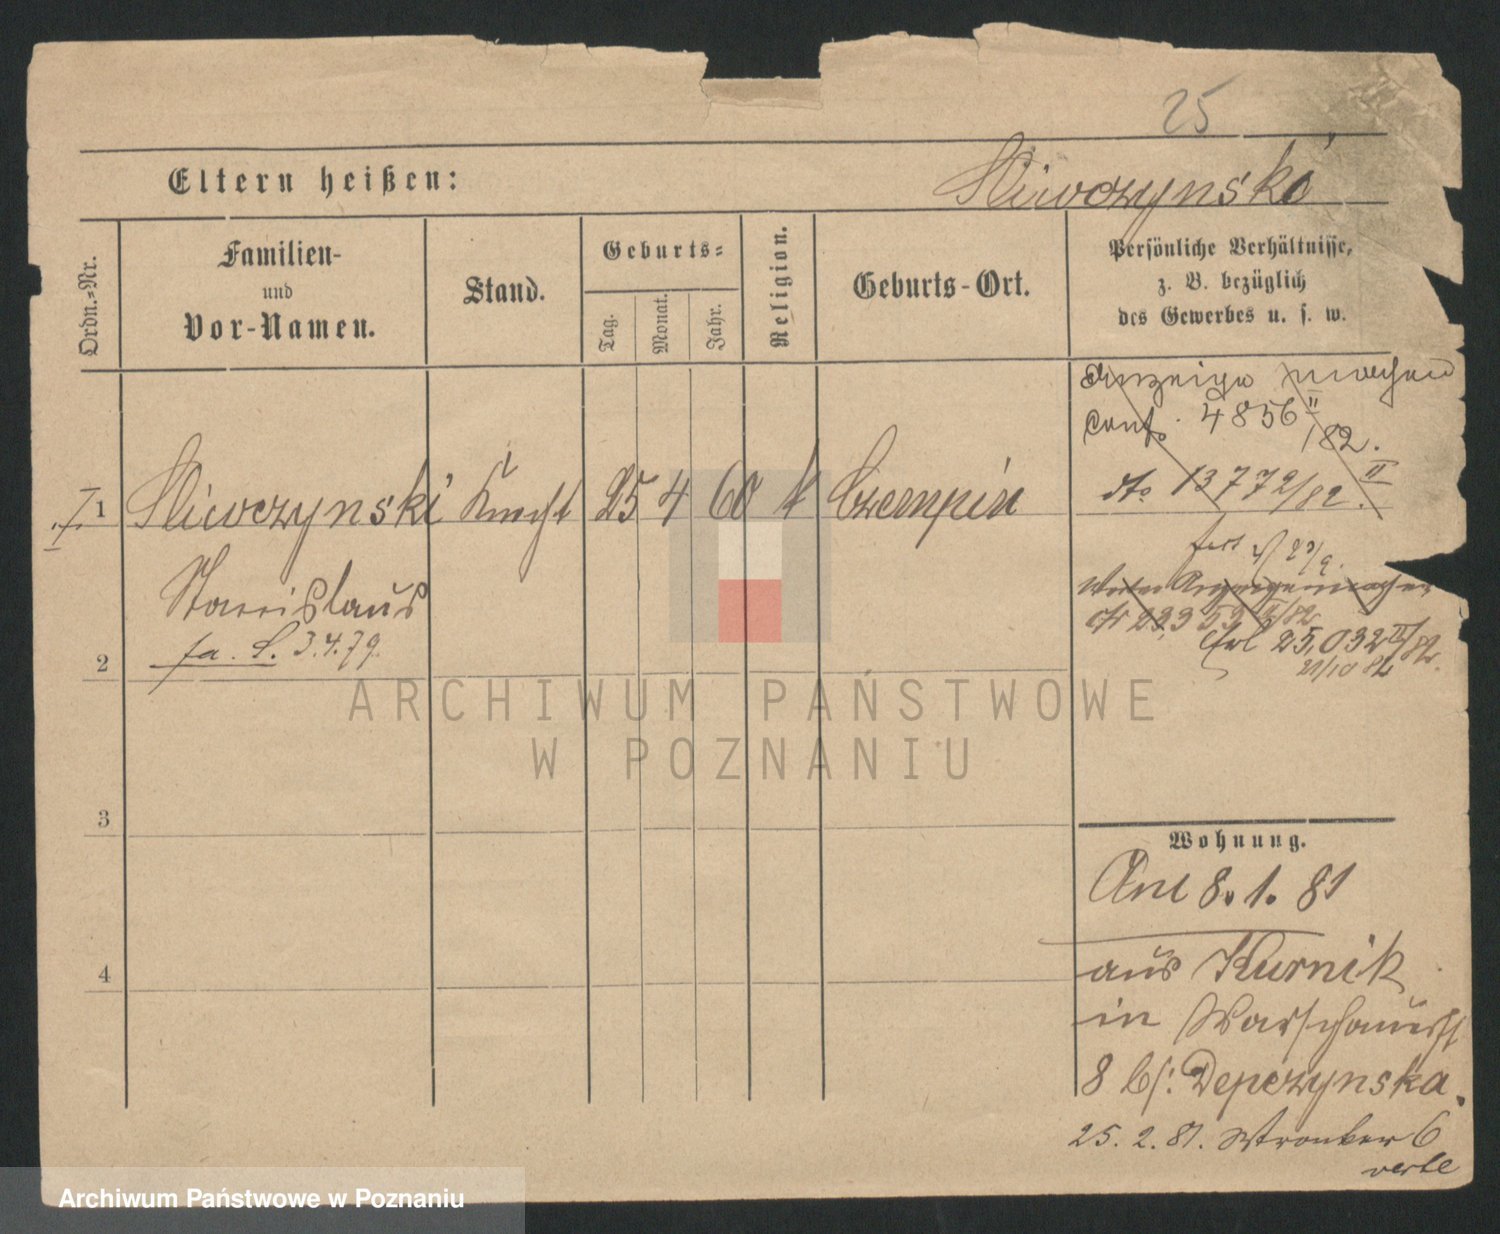 25
Eltern heißen:
Sliwczynski
Ordn.-Nr.
Familien-
und
Vor-Namen.
Stand.
Geburts-
Tag.
Monat.
Jahr.
Religion.
Geburts-Ort.
Persönliche Verhältnisse,
z. B. bezüglich
des Gewerbes u. s. w.
Anzeige machen
Conf. 4856 II
/82.
dto 13772/82. II
1 Sliwczynski Knecht 25 4 60 k Czempin
Stanislaus
3.4.79.
2
Anzeige machen
25,032 II/82.
21/10 82
3
Wohnung.
Am 8. 1. 81
4
aus Kurnik
in Warschauerst
8 bs: Depczynska.
25. 2. 81. Wronker 6
verte
ARCHIWUM PAŃSTWOWE
W POZNANIU
Archiwum Państwowe w Poznaniu